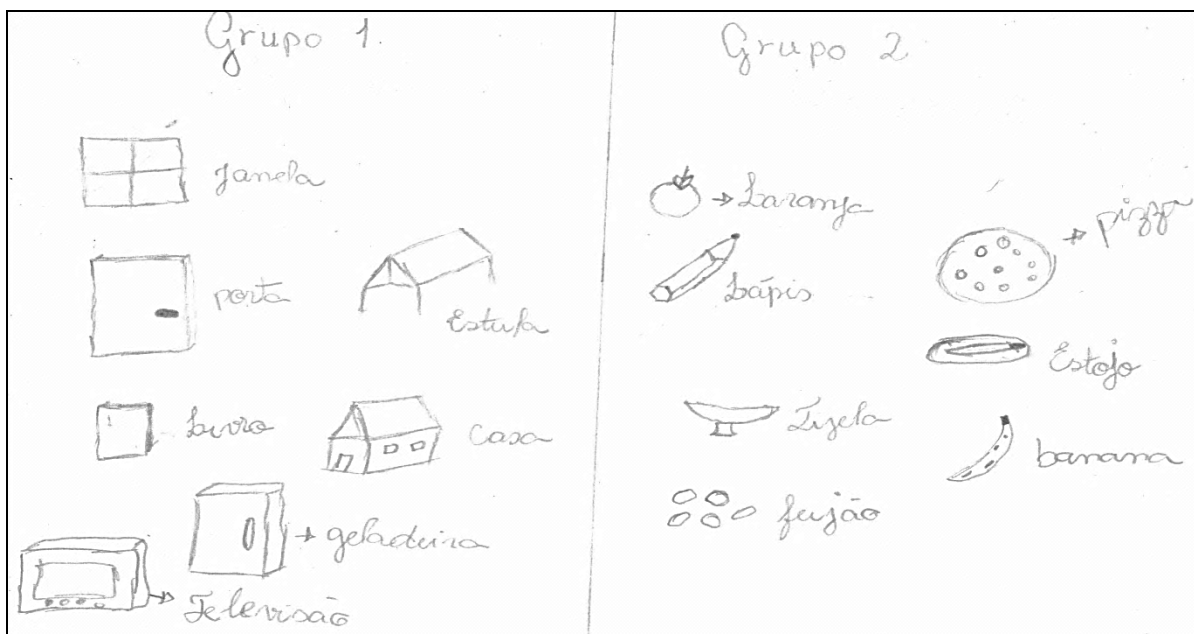 Grupo 1
Janela
porta
Estufa
Livro
casa
geladeira
Televisão
Grupo 2
Laranja
pizza
Lápis
Estojo
Tijela
banana
feijão